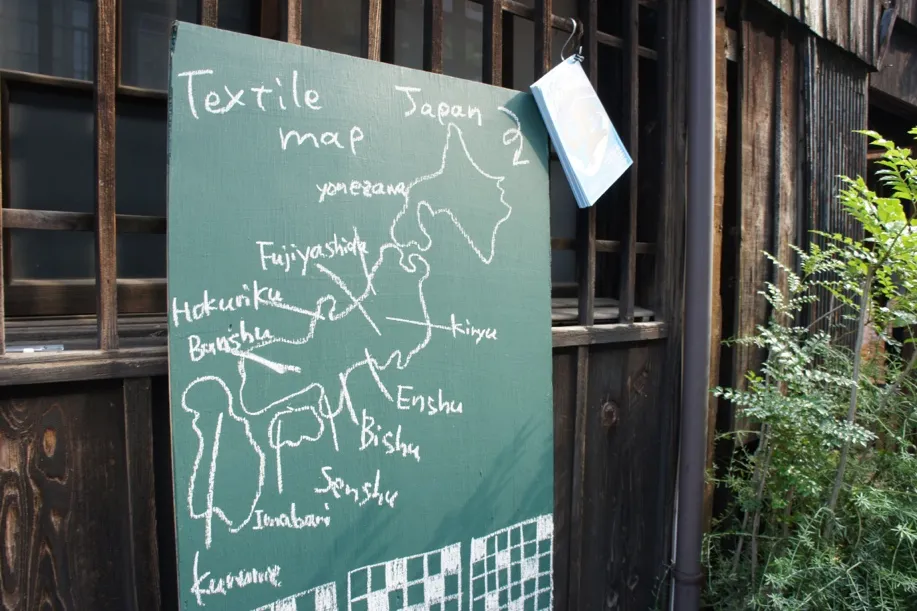 Textile
map
Japan
yonezawa
Fujiyashida
Hokuriku
Bunshu
Kiryu
Enshu
Bishu
Senshu
Imabari
Kurume